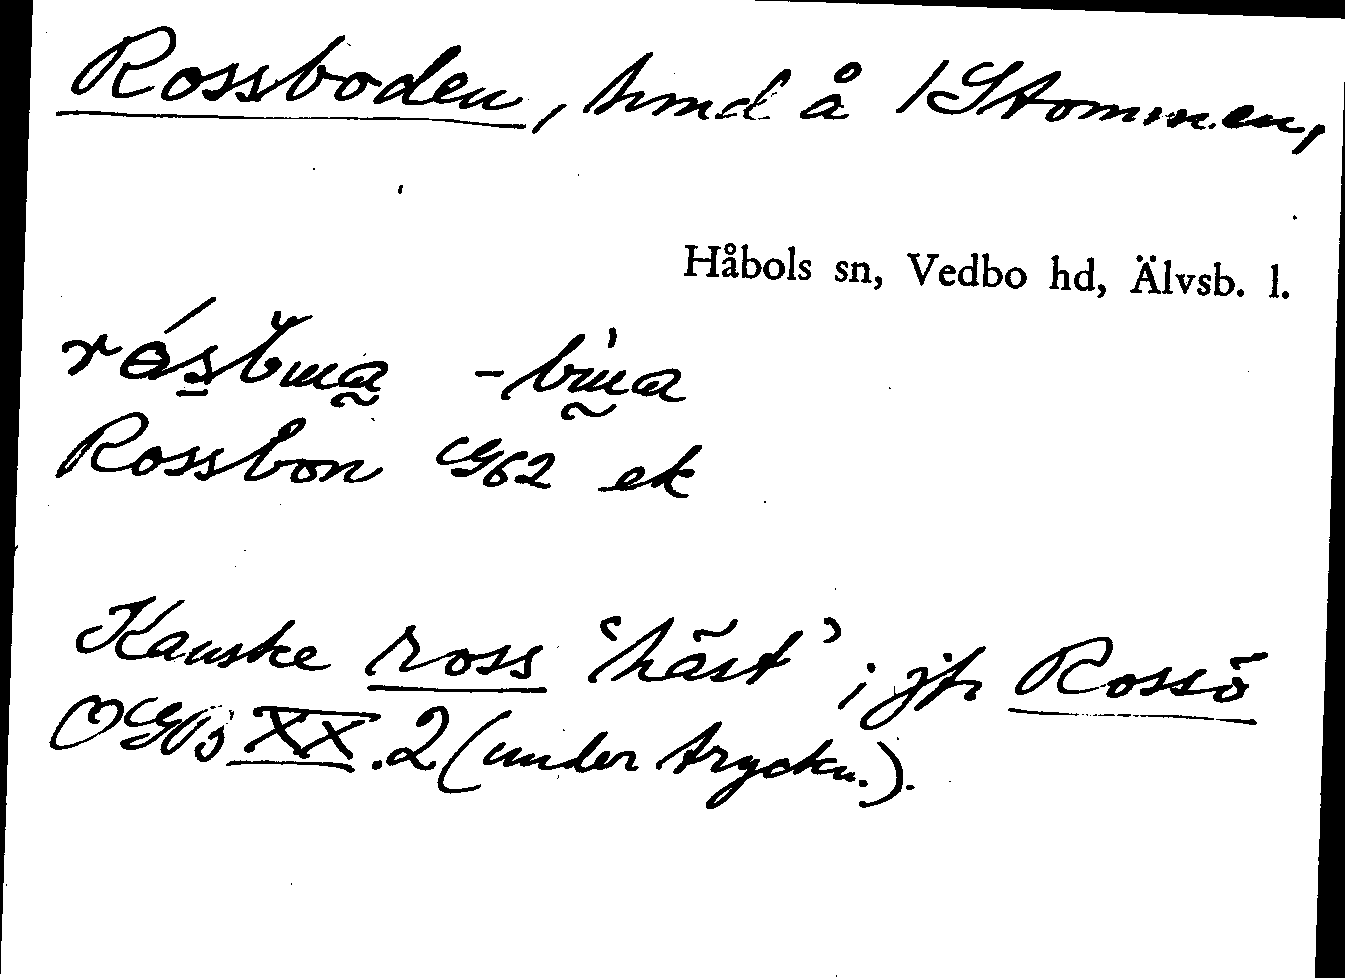 Rossboden, hmd å 1 Stommen,
Håbols sn, Vedbo hd, Älvsb. l.
Rossbon G62 ek
Kanske ross 'häst'; jfr Rossö
OGB XX.2 (under tryckn.).